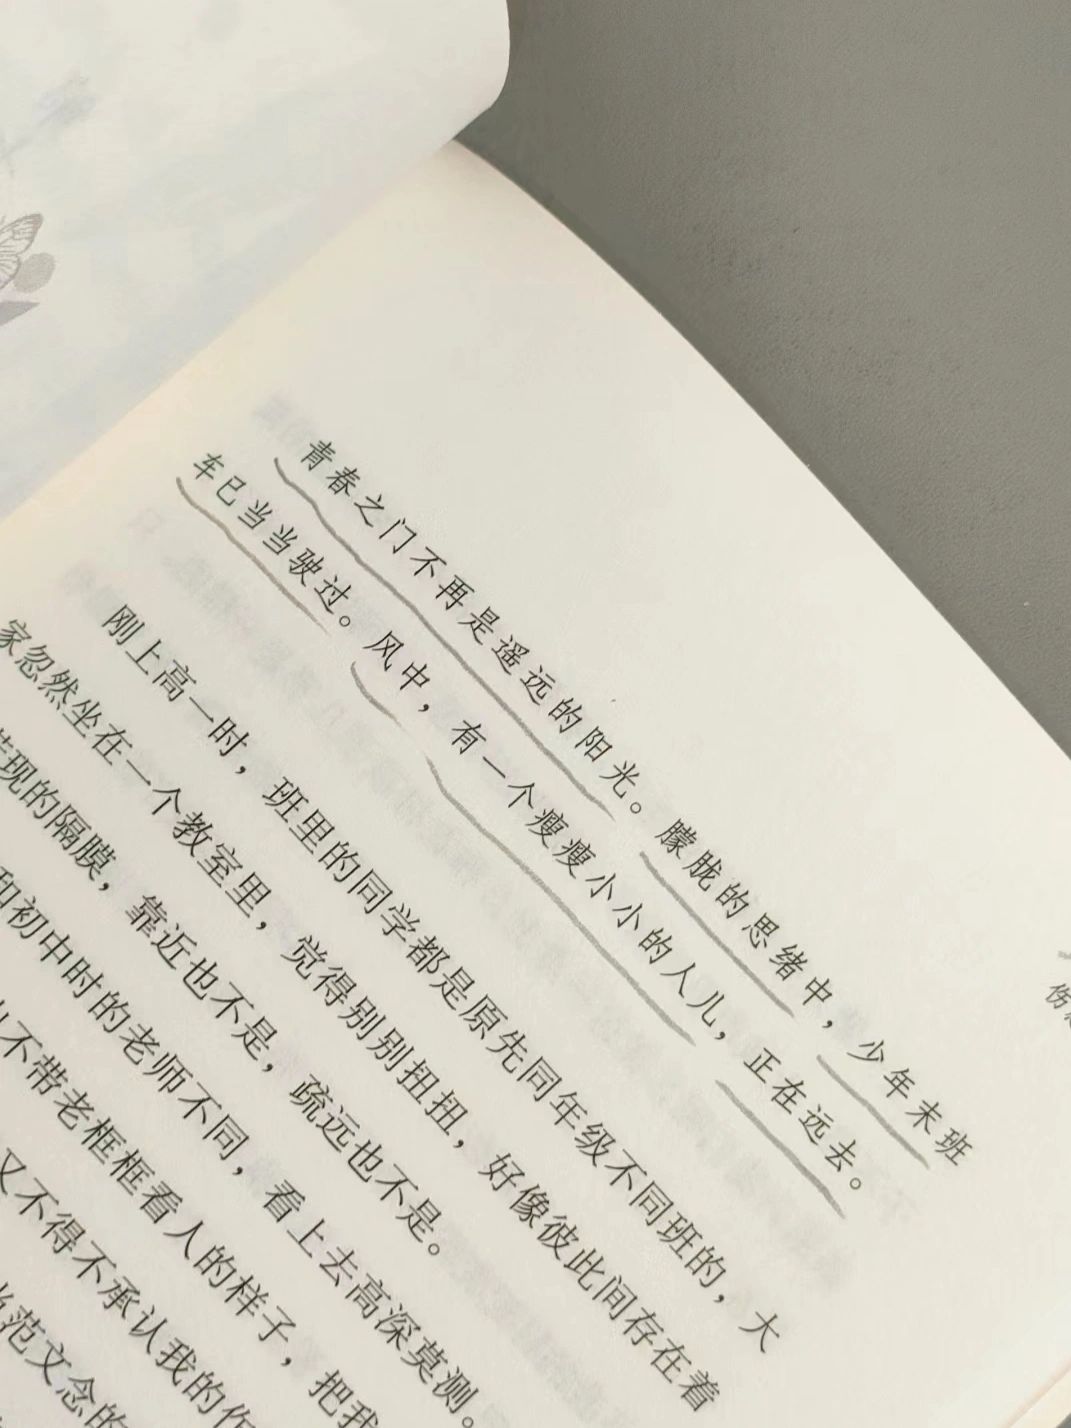 青春之门不再是遥远的阳光。朦胧的思绪中，少年末班
车已当当驶过。风中，有一个瘦瘦小小的人儿，正在远去。
刚上高一时，班里的同学都是原先同年级不同班的，大
家忽然坐在一个教室里，觉得别别扭扭，好像彼此间存在着
若现的隔膜，靠近也不是，疏远也不是。
和初中时的老师不同，看上去高深莫测。
不带老框框看人的样子，把我
又不得不承认我的作
当范文念的
伤